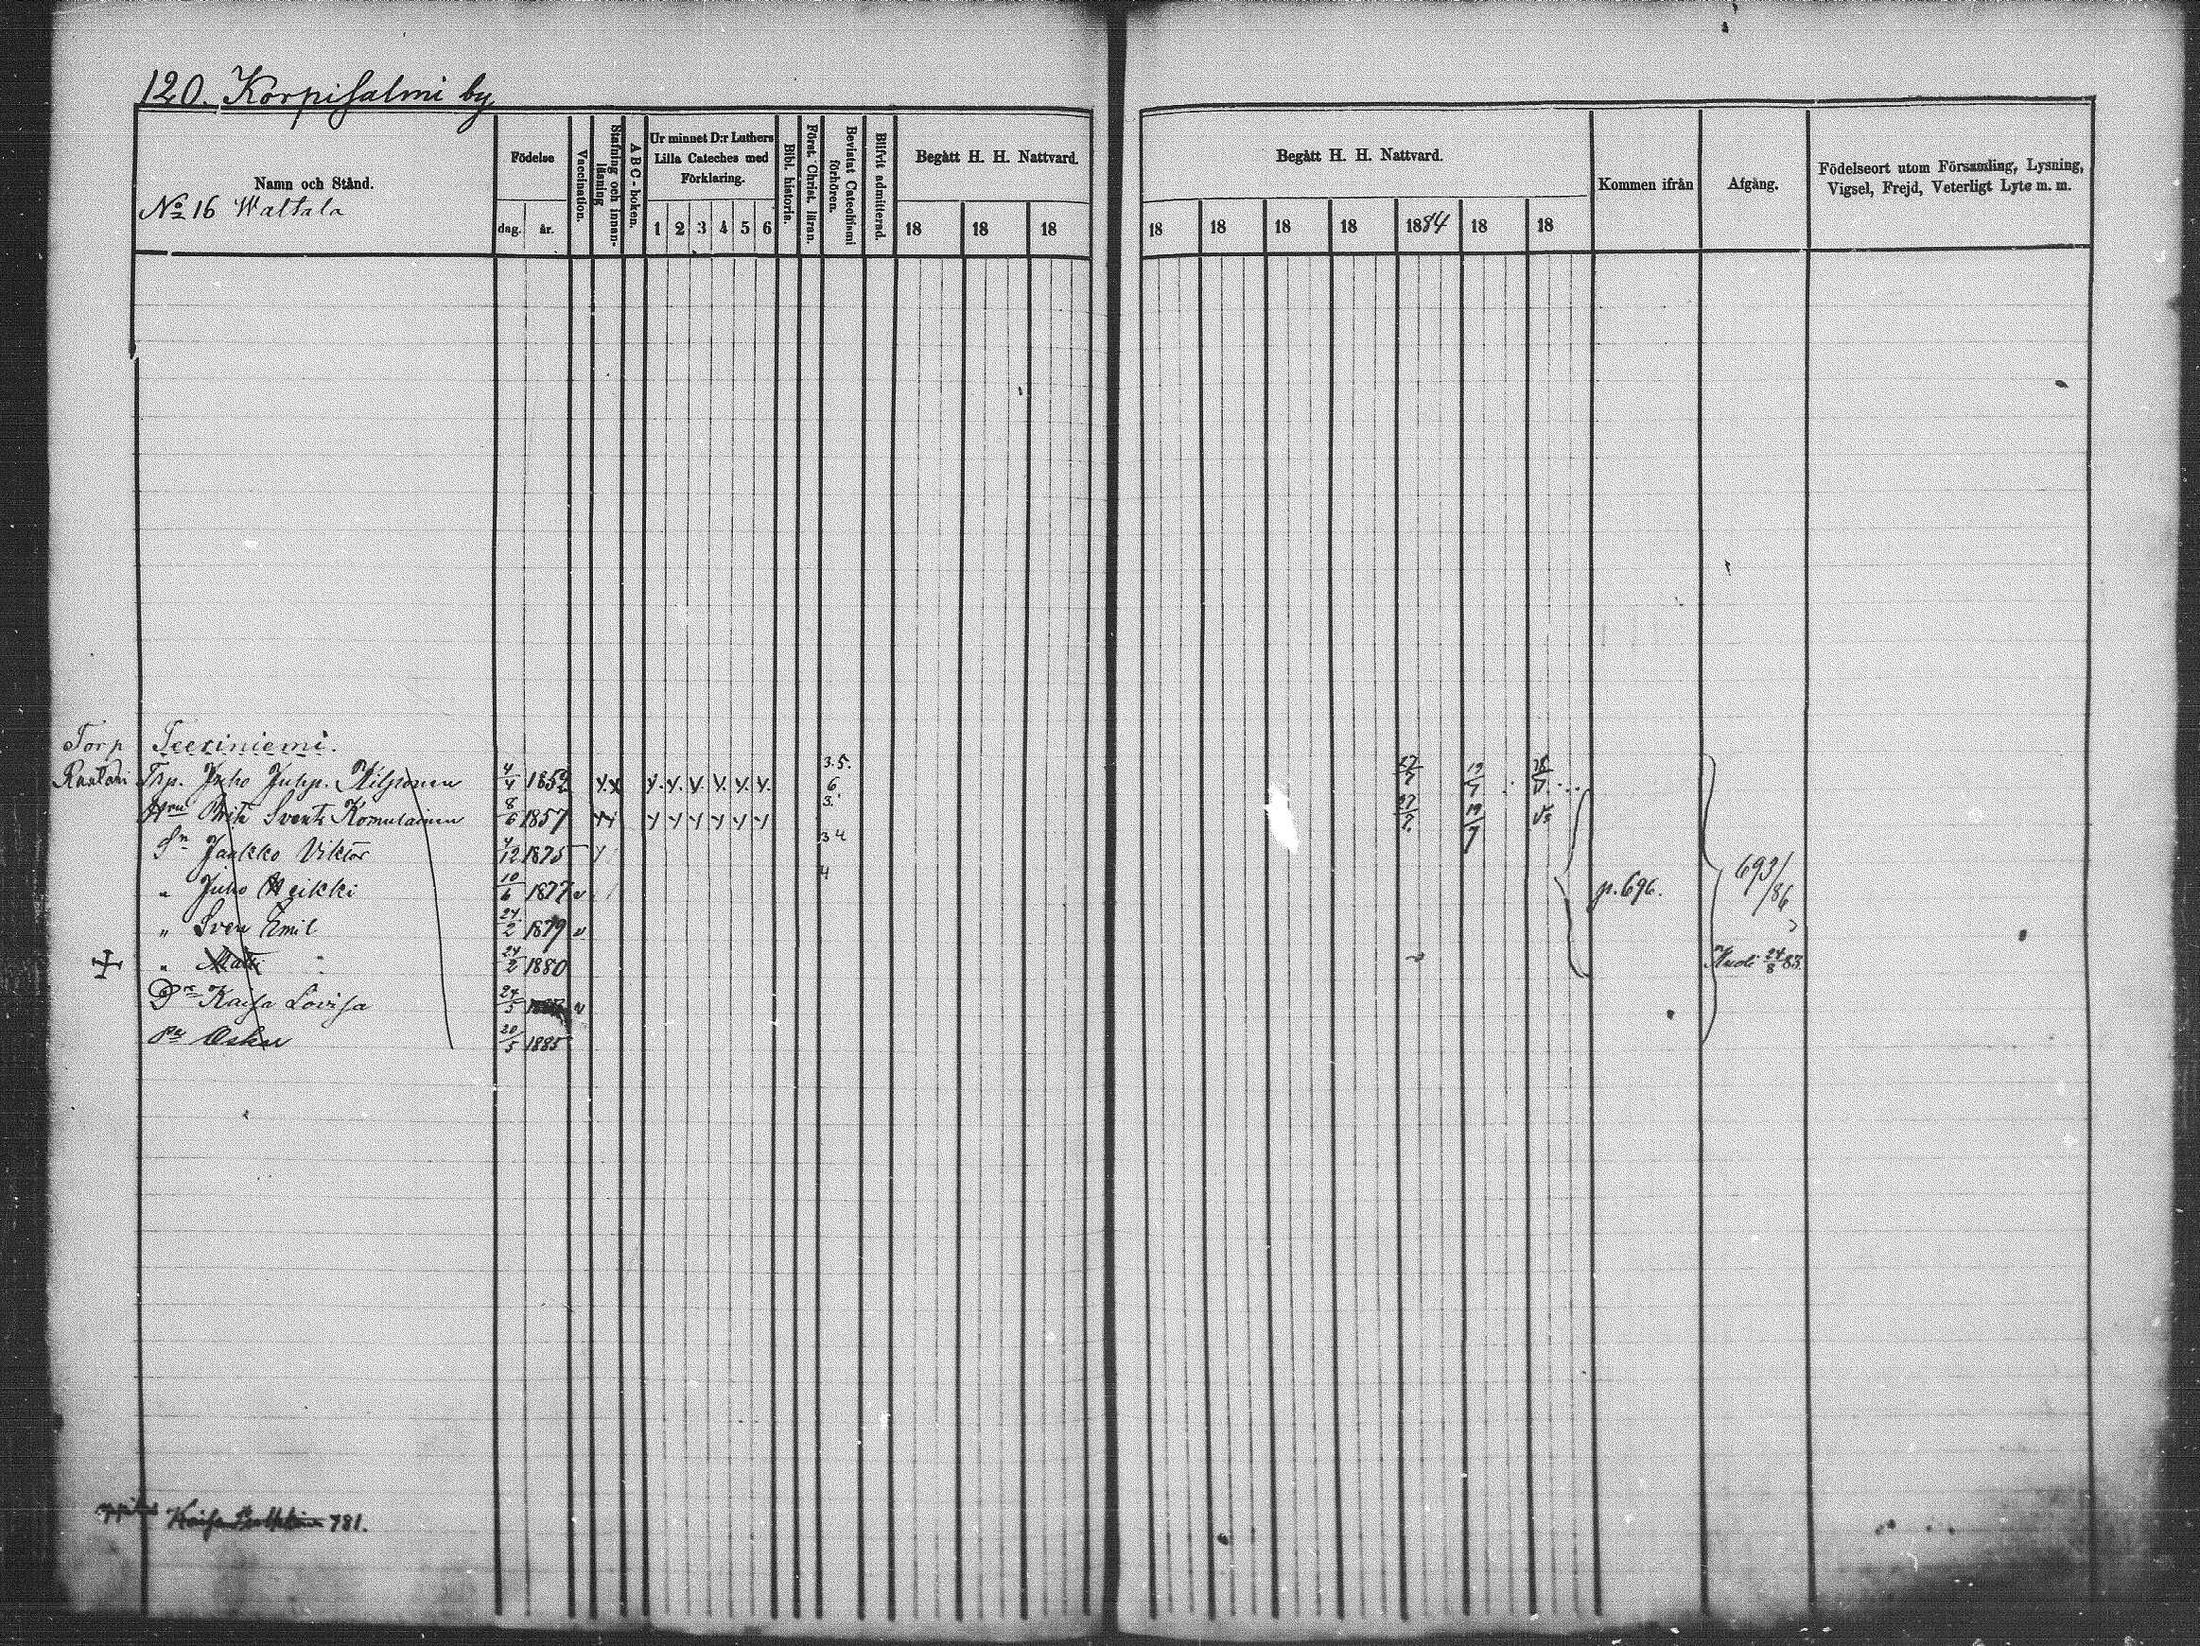 120. Korpisalmi by
Namn och Stånd.
No 16 Wattala
Födelse
dag. år.
Vaccination.
Stafning och innan-läsning
A B C-boken.
Ur minnet D:r Luthers
Lilla Cateches med
Förklaring.
1 2 3 4 5 6
Bibl. historia.
Först. Christ. läran.
Bevistat Catechismi förhören.
Blifvit admitterad.
Begått H. H. Nattvard.
18 18 18
Begått H. H. Nattvard.
18 18 18 18 1884 18 18
Kommen ifrån
Afgång.
Födelseort utom Församling, Lysning,
Vigsel, Frejd, Veterligt Lyte m. m.
Torp Teeriniemi.
Trp. Juho Juhp. Kilponen 4/4 1852 3.5. 6 27/7 19/7
Hru Brita Sventr Komulainen 8/6 1857 3. 27/7 19/7
Sn Jaakko Viktor 4/12 1875 3 4
" Juho Heikki 10/6 1877 v 4 p. 696. 693/86
" Sven Emil 24/2 1879 v
" Matti " 24/2 1880 Kuoli 24/8 83
Dr Kaisa Lovisa 24/5 v
Pn Oskar 20/5 1885
Kaisa 781.